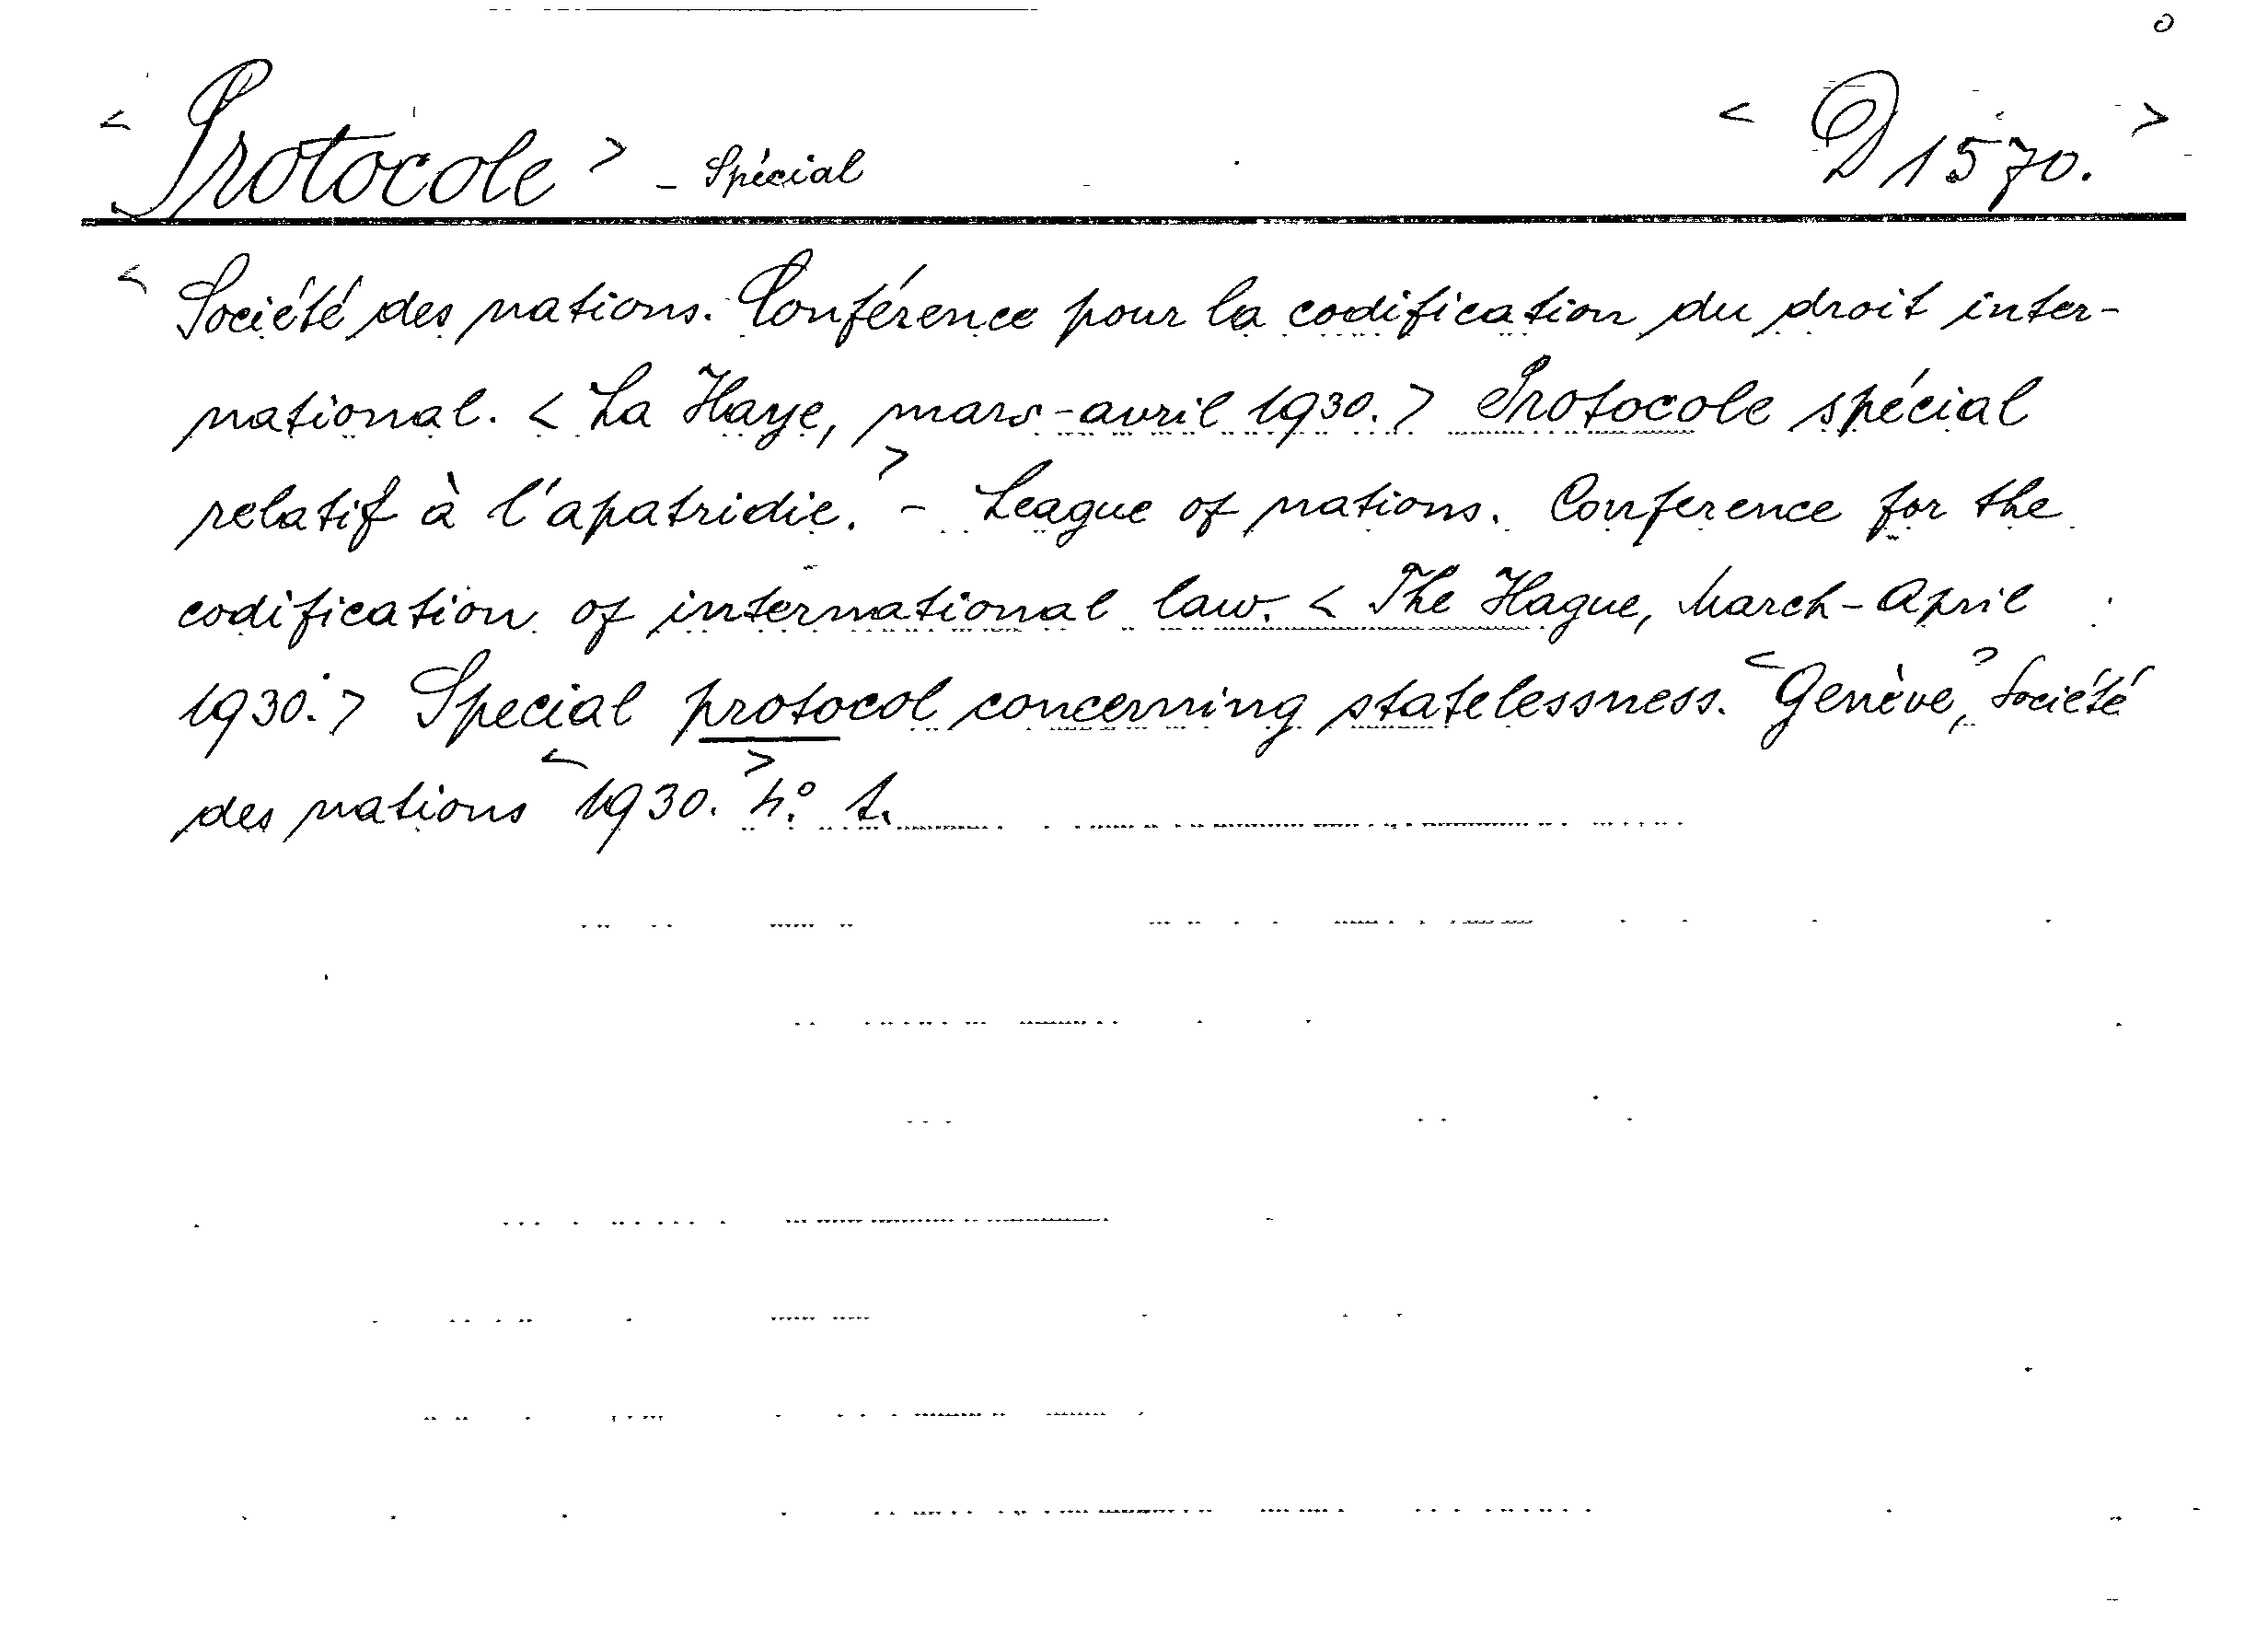 < Protocole > - Spécial < D 1570. >
< Société des nations. Conférence pour la codification du droit inter-
national. < La Haye, mars-avril 1930. > Protocole spécial
relatif à l'apatridie. > - League of nations. Conference for the
codification of international law. < The Hague, March-April
1930. > Special protocol concerning statelessness. < Genève, > Société
des nations < 1930. > 4.º